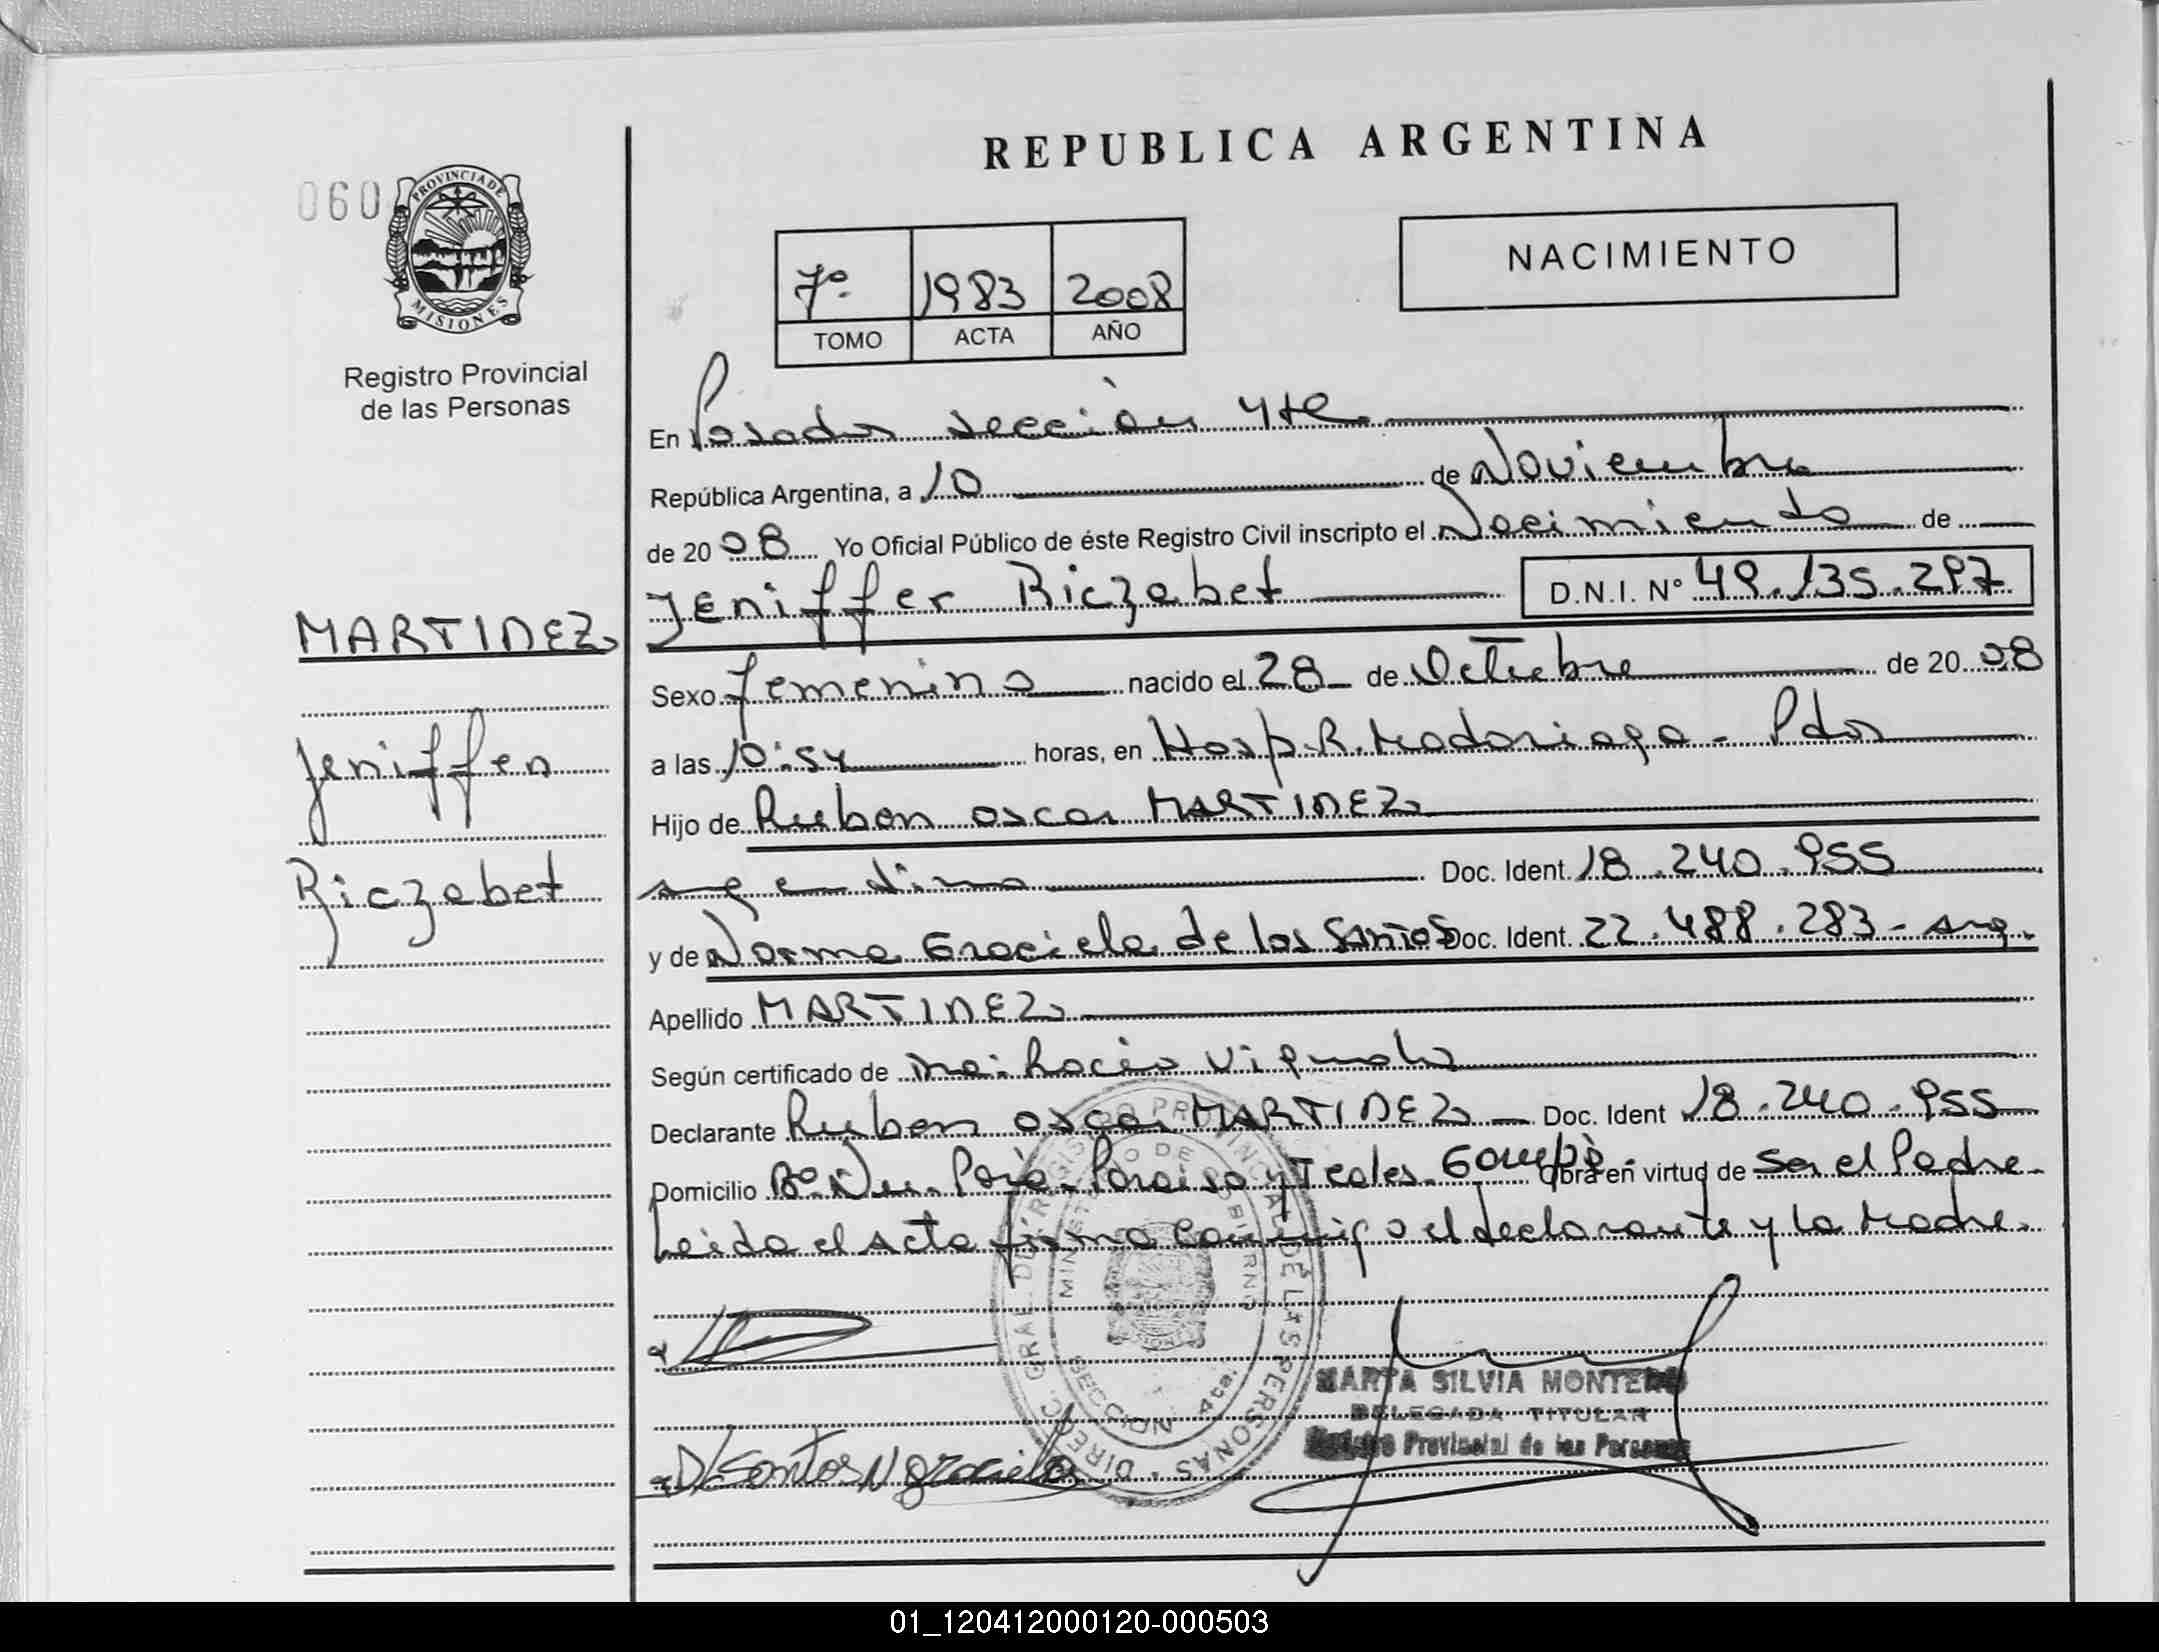 REPUBLICA ARGENTINA
060
PROVINCIA DE
MISIONES
Registro Provincial
de las Personas
7º 1983 2008
TOMO ACTA AÑO
NACIMIENTO
En Posadas sección 4ta
República Argentina, a 10 de Noviembre
de 2008 Yo Oficial Público de éste Registro Civil inscripto el Nacimiento de
Jeniffer Riczabet D.N.I. Nº 49.135.297
MARTINEZ
Jeniffer
Riczabet
Sexo femenino nacido el 28 de Octubre de 2008
a las 10:54 horas, en Hosp. R. Madariaga - Pdas
Hijo de Ruben Oscar MARTINEZ
Doc. Ident. 18.240.955
y de Norma Graciela de los Santos Doc. Ident. 22.488.283 - Arg.
Apellido MARTINEZ
Según certificado de Rocio
Declarante Ruben Oscar MARTINEZ Doc. Ident 18.240.955
Domicilio Bº Nu. Paraiso y Teales. Garupá. Obra en virtud de ser el Padre.
Leida el Acta firma conmigo el declarante y la Madre.
DIREC. GRAL. DEL REGISTRO PROVINCIAL DE LAS PERSONAS
MINISTERIO DE GOBIERNO
SECCION 4ta.
MARTA SILVIA MONTERO
DELEGADA TITULAR
Registro Provincial de las Personas
D/Santos N graciela
01_120412000120-000503